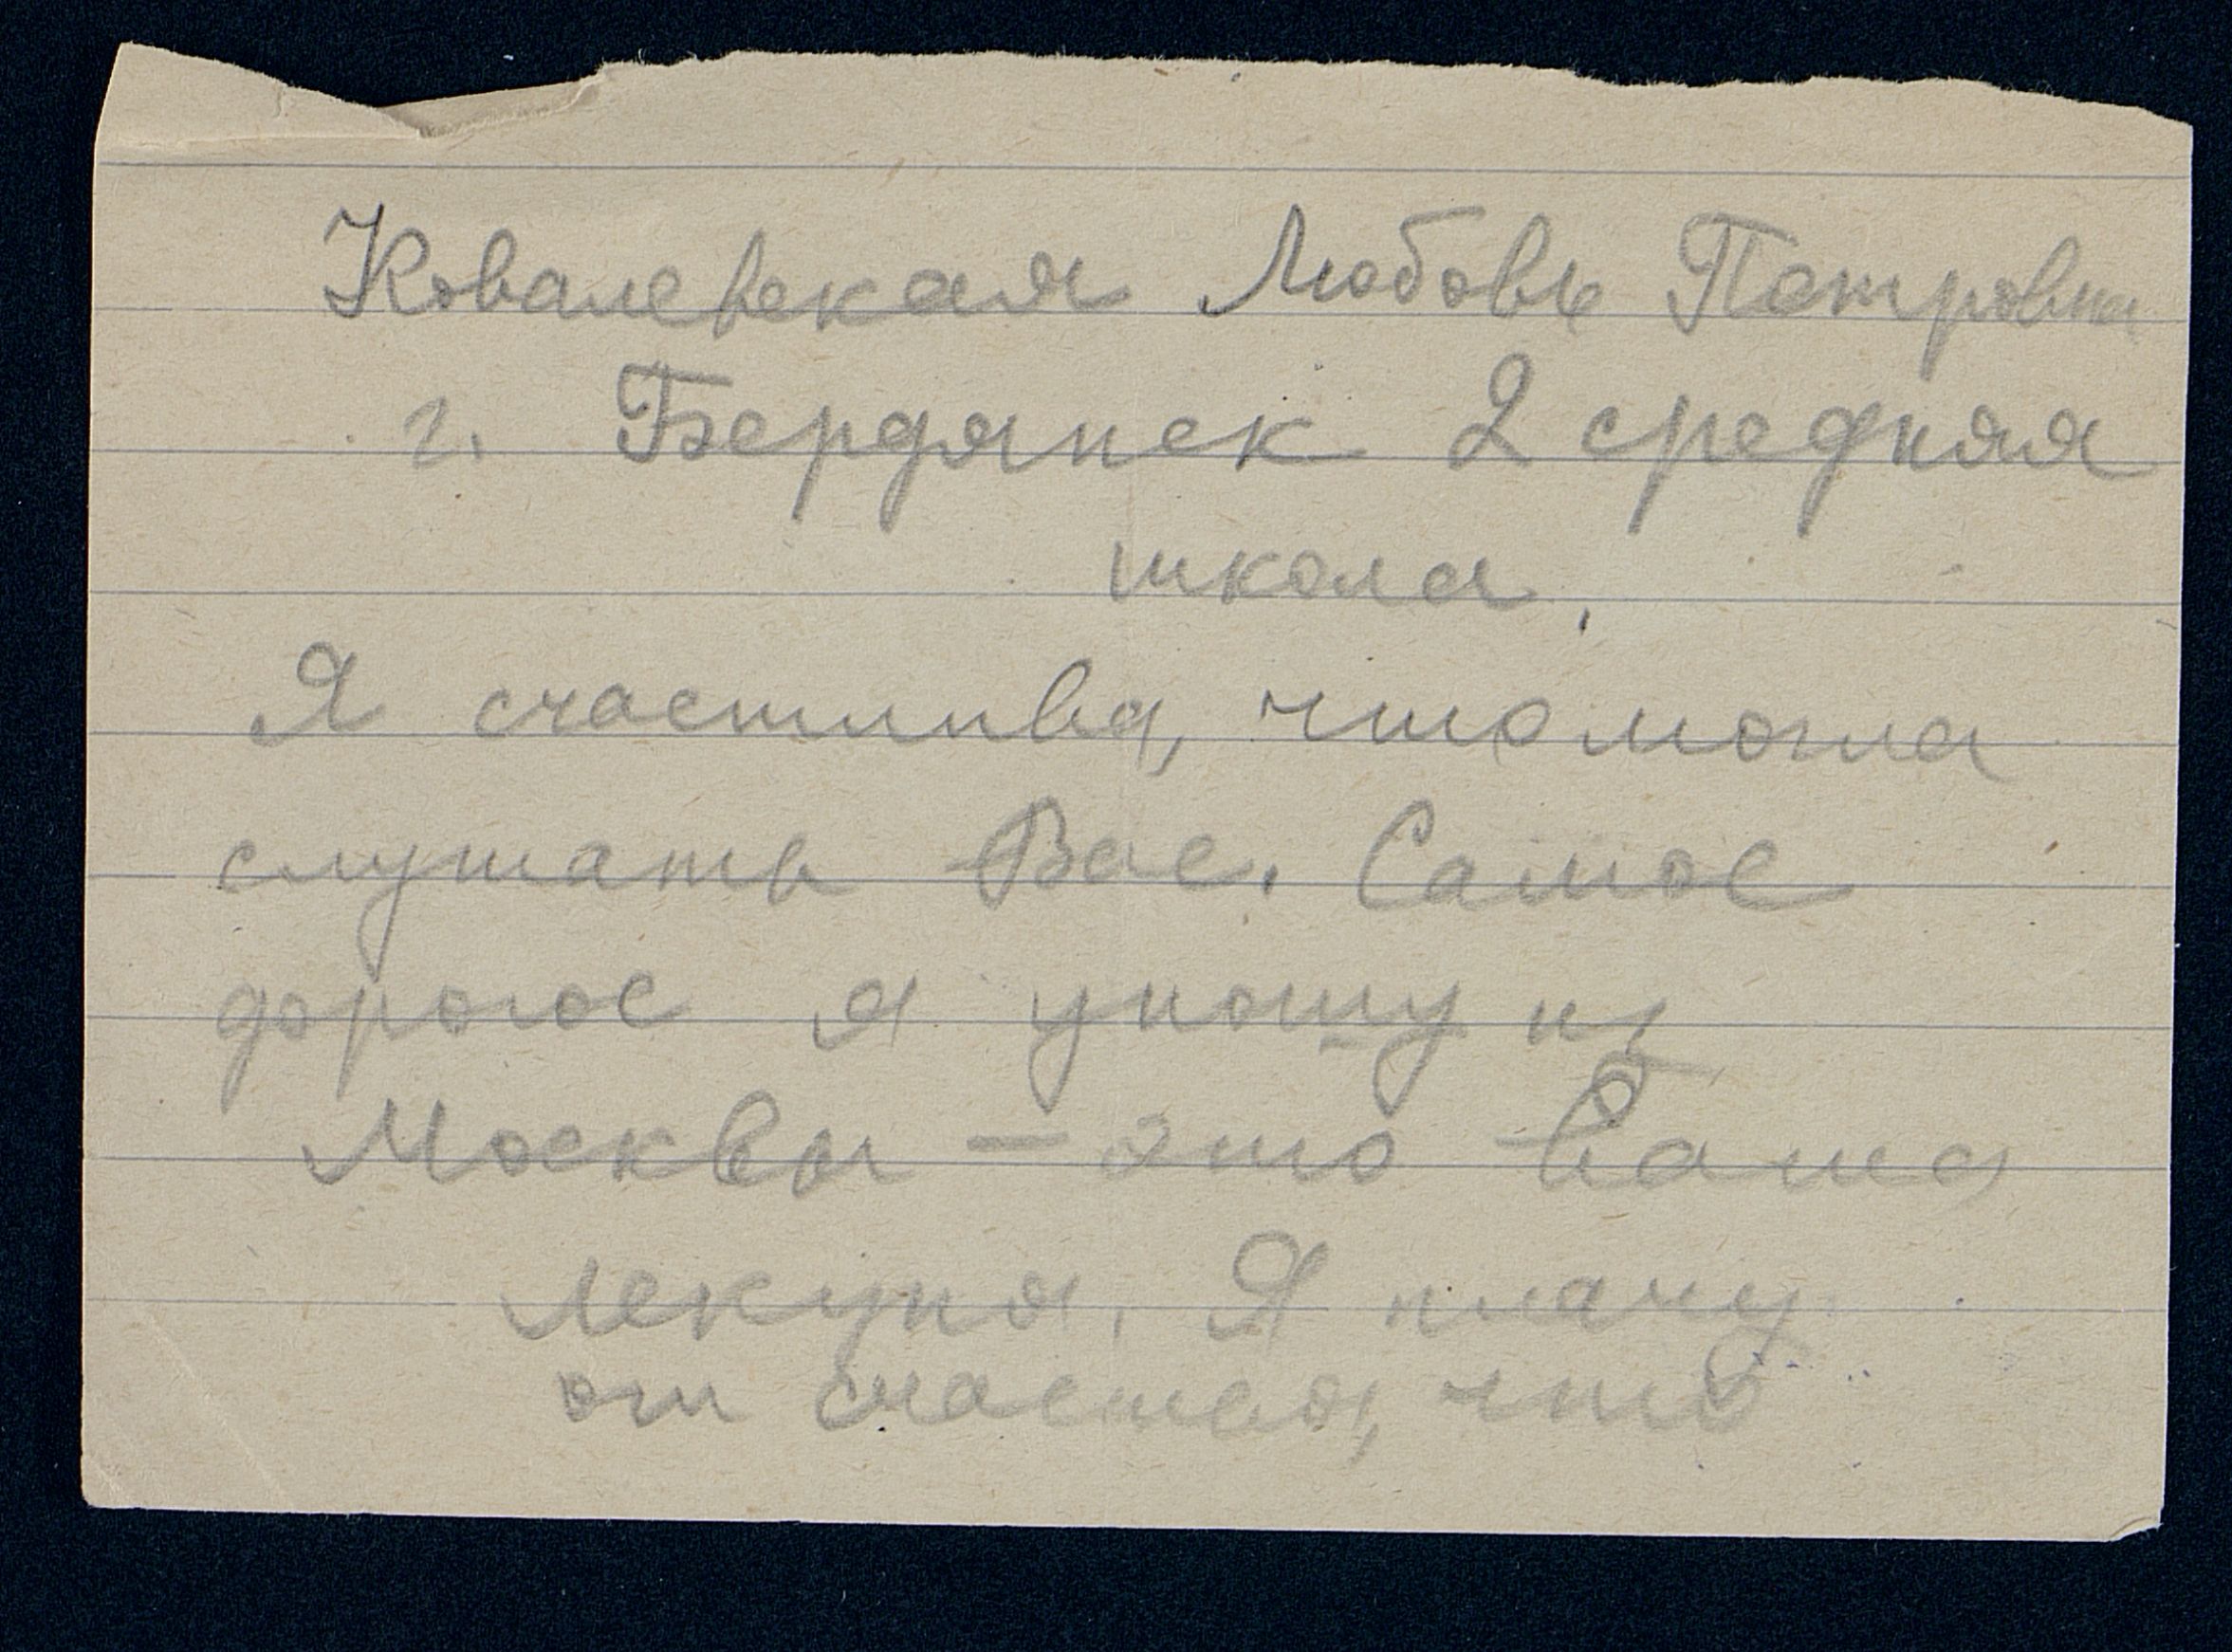 Ковалевская Любовь Петровна
г. Бердянск 2 средняя
школа.
Я счастлива, что могла
слушать Вас. Самое
дорогое я уношу из
Москвы — это Ваша
лекция. Я плачу
от счастья, что